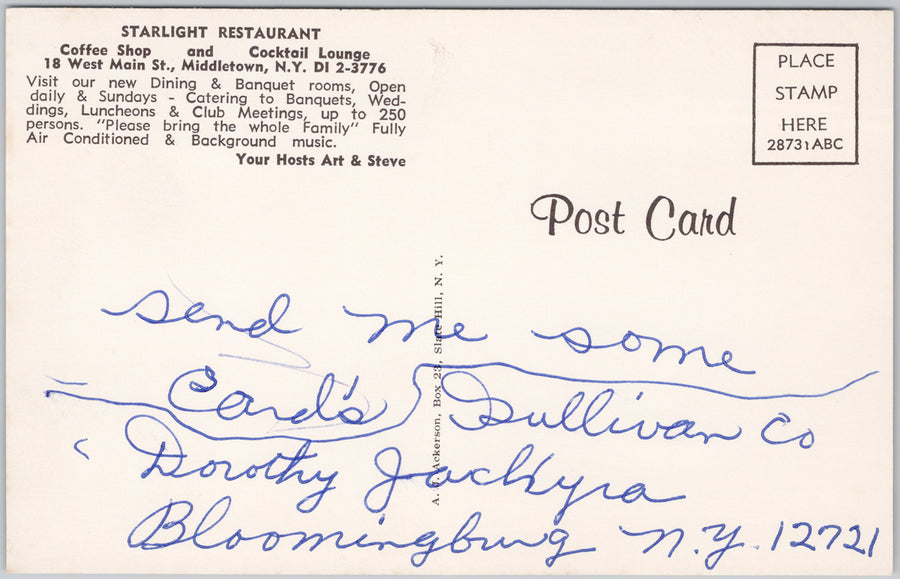 STARLIGHT RESTAURANT
Coffee Shop and Cocktail Lounge
18 West Main St., Middletown, N.Y. DI 2-3776
Visit our new Dining & Banquet rooms, Open
daily & Sundays - Catering to Banquets, Wed-
dings, Luncheons & Club Meetings, up to 250
persons. "Please bring the whole Family" Fully
Air Conditioned & Background music.
Your Hosts Art & Steve
PLACE
STAMP
HERE
28731 ABC
Post Card
Ackerson, Box 23, Slate Hill, N. Y.
send me some
Card's
Sullivan Co
Dorothy
Bloomingburg N.Y. 12721